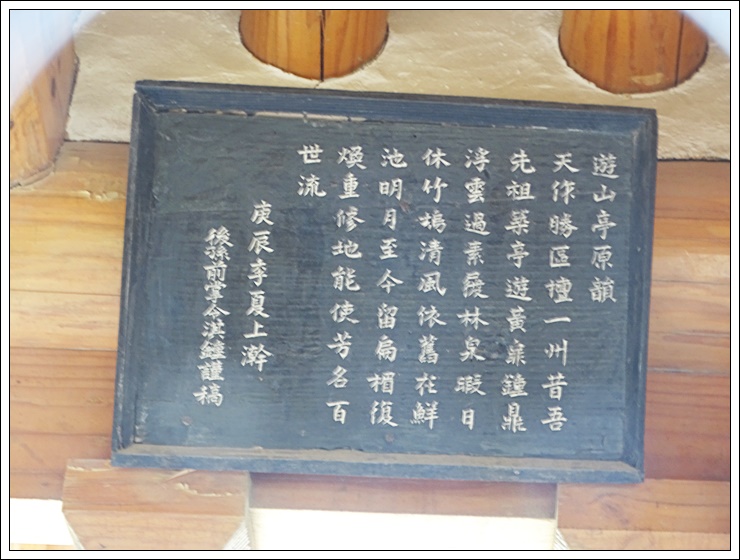 遊山亭原韻
天作勝區壇一州昔吾
先祖築亭遊黃鐘鼎
浮雲過素霞林泉暇日
休竹塢清風依舊在鮮
池明月至今留扁楣復
煥重修地能使芳名百
世流
庚辰季夏上澣
後孫前掌令淇謹稿